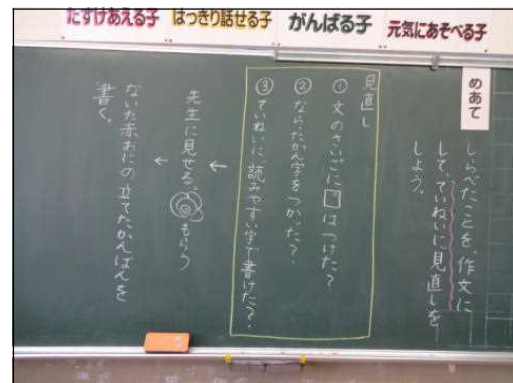 たすけあえる子
はっきり話せる子
がんばる子
元気にあそべる子
めあて
しらべたことを、作文に
して、ていねいに見直しを
しよう。
見直し
① 文のさいごに。はつけた?
② ならったかん字をつかった?
③ ていねいに、読みやすい字で書けた?
←
先生に見せる。もらう
←
ないた赤おにの立てたかんばんを
書く。